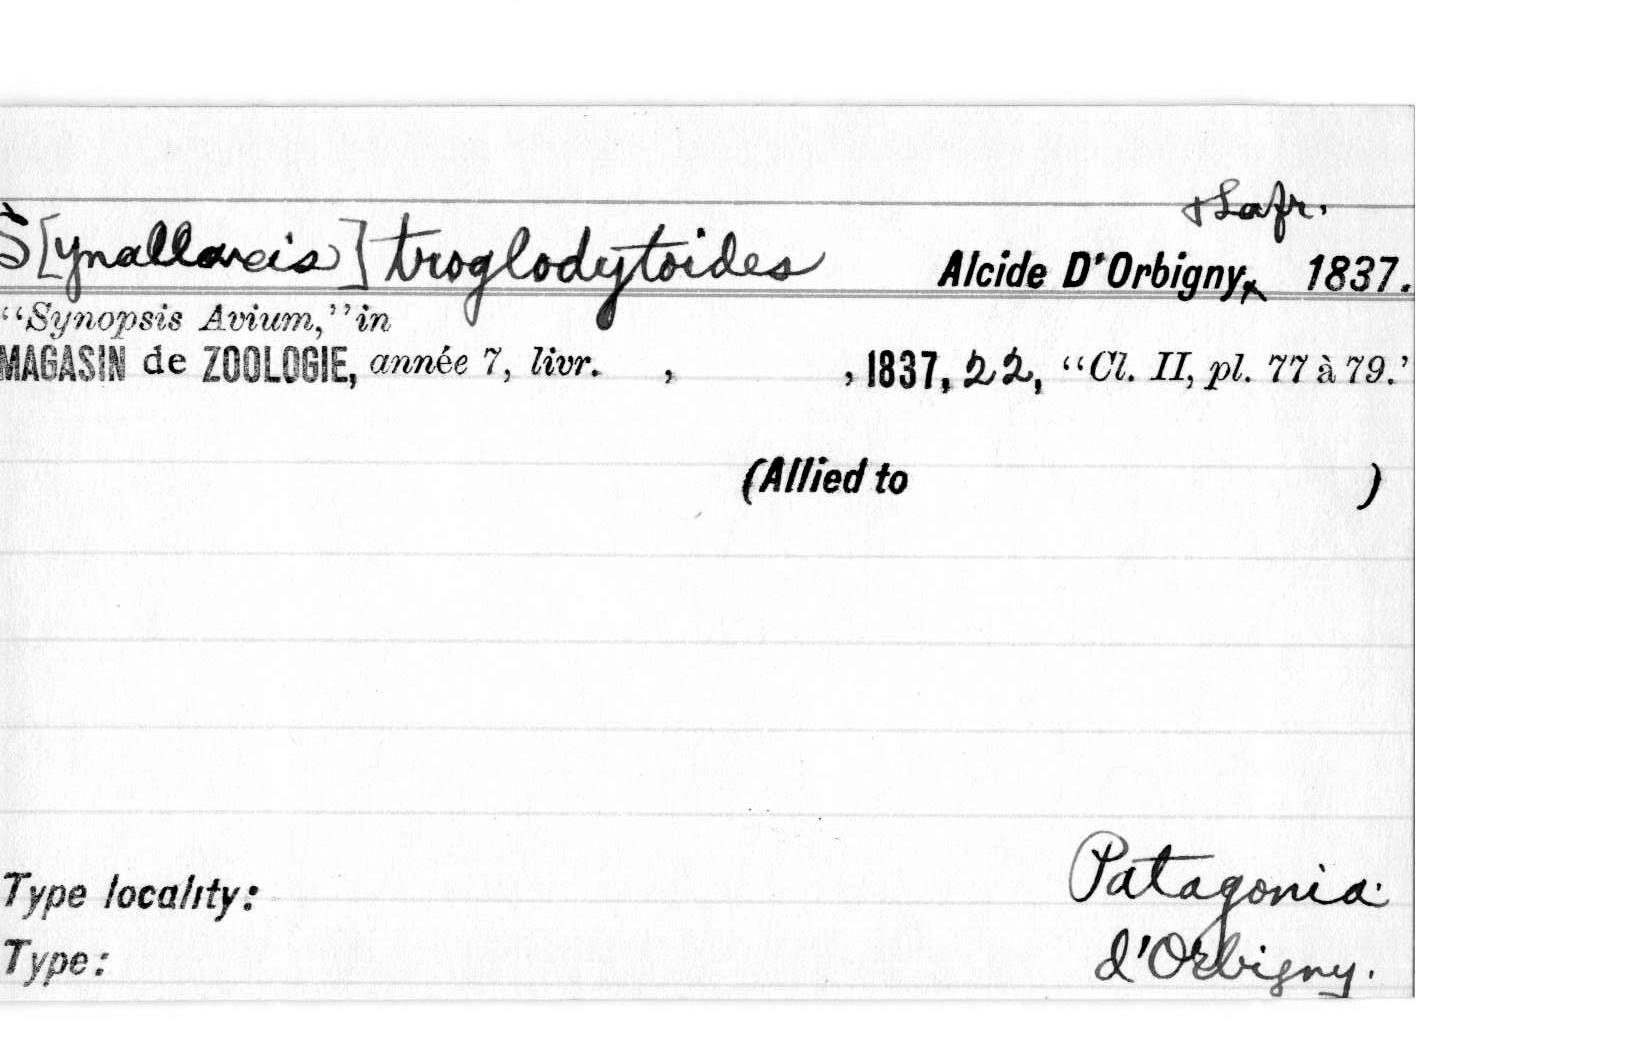 & Lafr.
S[ynallaxis] troglodytoides Alcide D'Orbigny, 1837.
"Synopsis Avium," in
MAGASIN de ZOOLOGIE, année 7, livr. , , 1837, 22, "Cl. II, pl. 77 à 79.'
(Allied to )
Type locality: Patagonia.
Type: d'Orbigny.